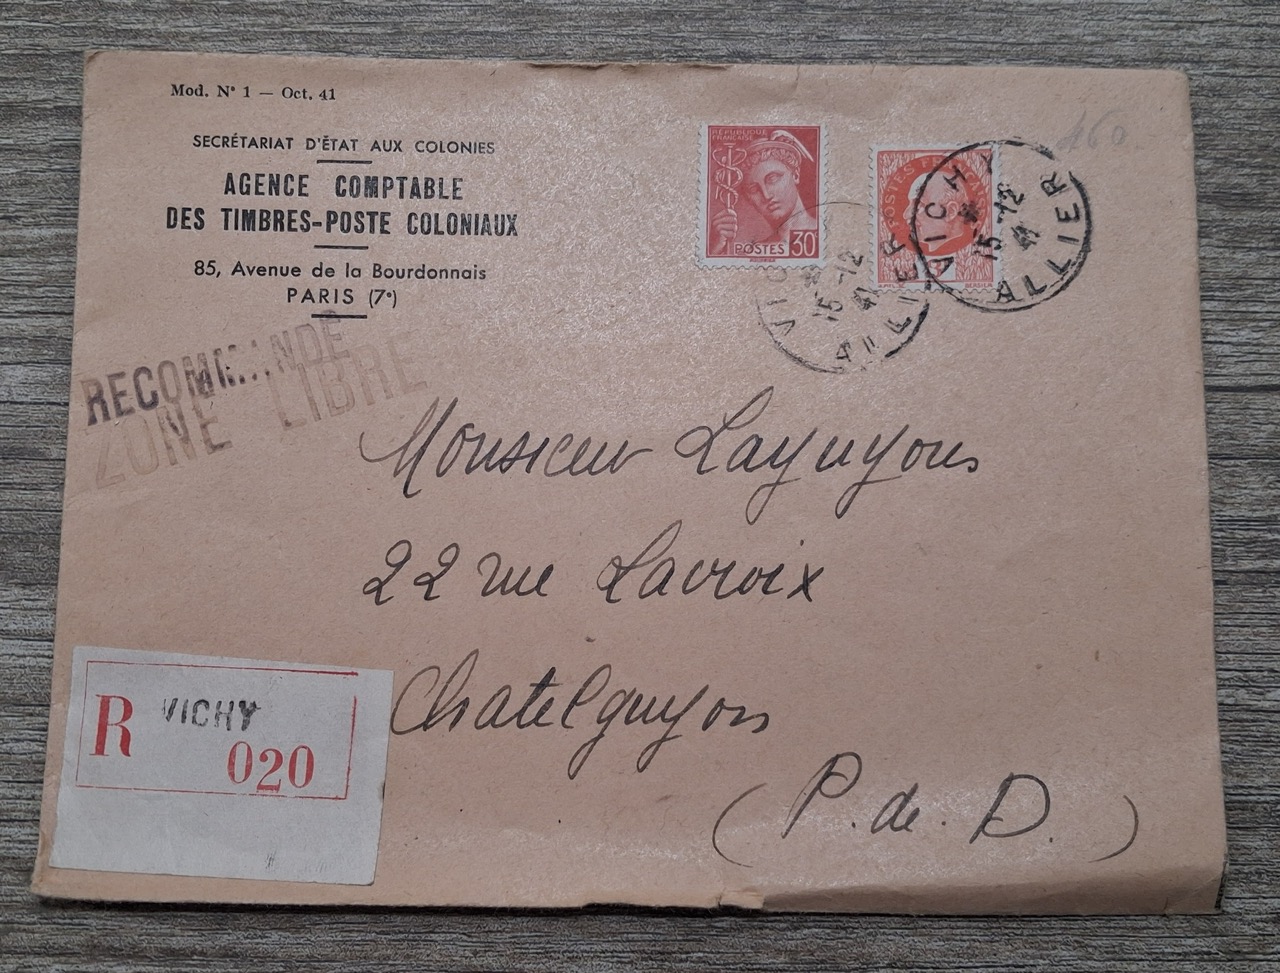 Mod. N° 1 — Oct. 41
SECRÉTARIAT D'ÉTAT AUX COLONIES
AGENCE COMPTABLE
DES TIMBRES-POSTE COLONIAUX
85, Avenue de la Bourdonnais
PARIS (7e)
160
RÉPUBLIQUE
FRANÇAISE
POSTES 30
POSTES FRANÇAISE
VICHY
15-12
41
ALLIER
VICHY
15-12
41
ALLIER
RECOMMANDÉ
ZONE LIBRE
Monsieur Layuyous
22 rue Lacroix
Chatelguyon
(P. de. D.)
R VICHY
020